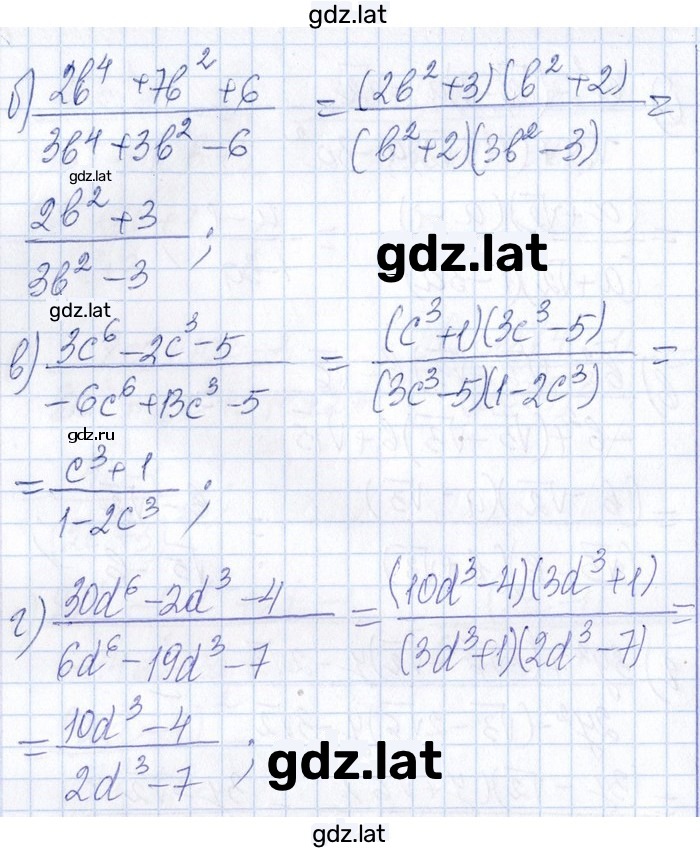 gdz.lat
б) (2b⁴ + 7b² + 6)/(3b⁴ + 3b² - 6) = ((2b² + 3)(b² + 2))/((b² + 2)(3b² - 3)) =
gdz.lat
(2b² + 3)/(3b² - 3) ;
gdz.lat
gdz.lat
в) (3c⁶ - 2c³ - 5)/(-6c⁶ + 13c³ - 5) = ((c³ + 1)(3c³ - 5))/((3c³ - 5)(1 - 2c³)) =
gdz.ru
= (c³ + 1)/(1 - 2c³) ;
г) (30d⁶ - 2d³ - 4)/(6d⁶ - 19d³ - 7) = ((10d³ - 4)(3d³ + 1))/((3d³ + 1)(2d³ - 7)) =
= (10d³ - 4)/(2d³ - 7) ;
gdz.lat
gdz.lat